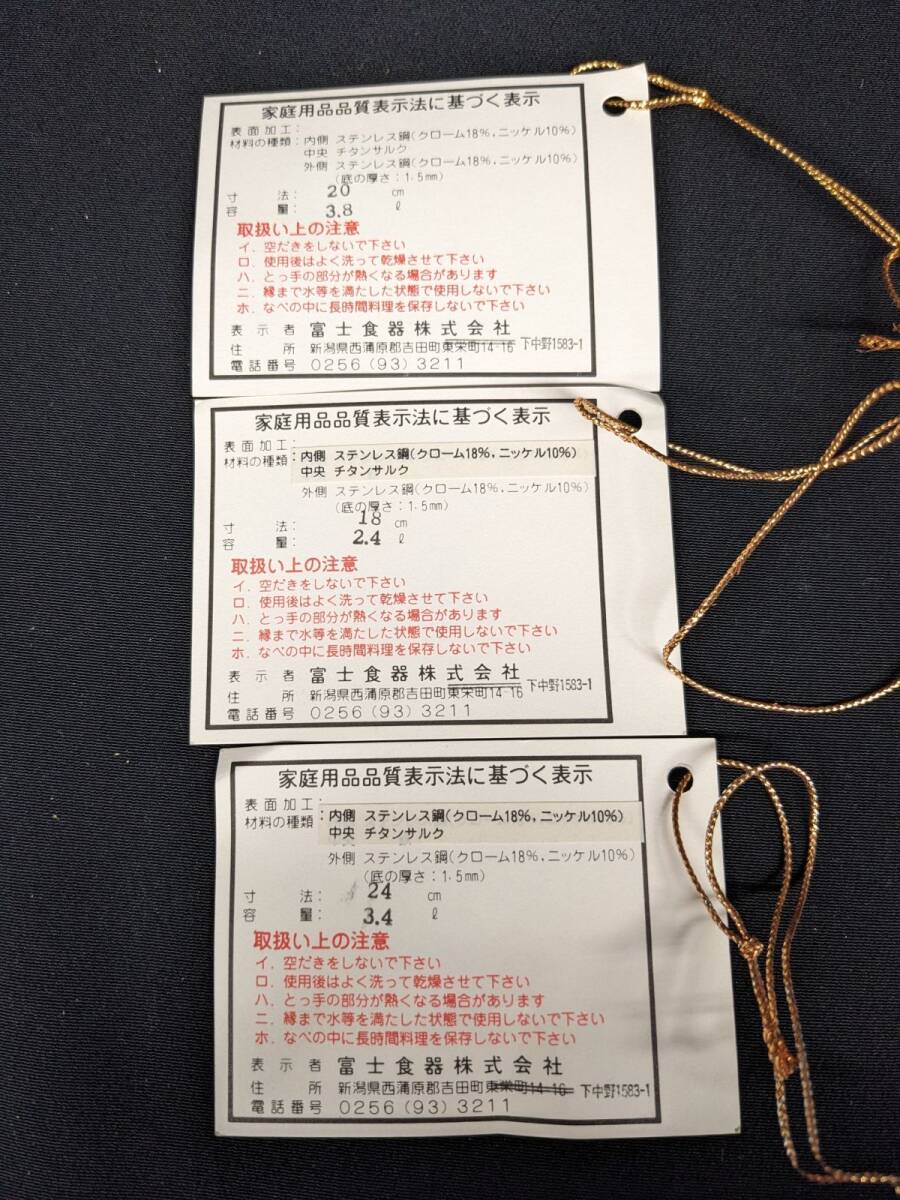 家庭用品品質表示法に基づく表示
表面加工:
材料の種類:内側 ステンレス鋼(クローム18%,ニッケル10%)
中央 チタンサルク
外側 ステンレス鋼(クローム18%,ニッケル10%)
(底の厚さ:1.5mm)
寸法: 20 cm
容量: 3.8 ℓ
取扱い上の注意
イ.空だきをしないで下さい
ロ.使用後はよく洗って乾燥させて下さい
ハ.とっ手の部分が熱くなる場合があります
ニ.縁まで水等を満たした状態で使用しないで下さい
ホ.なべの中に長時間料理を保存しないで下さい
表示者 富士食器株式会社
住所 新潟県西蒲原郡吉田町東栄町14-16 下中野1583-1
電話番号 0256(93)3211
家庭用品品質表示法に基づく表示
表面加工:
材料の種類:内側 ステンレス鋼(クローム18%,ニッケル10%)
中央 チタンサルク
外側 ステンレス鋼(クローム18%,ニッケル10%)
(底の厚さ:1.5mm)
寸法: 18 cm
容量: 2.4 ℓ
取扱い上の注意
イ.空だきをしないで下さい
ロ.使用後はよく洗って乾燥させて下さい
ハ.とっ手の部分が熱くなる場合があります
ニ.縁まで水等を満たした状態で使用しないで下さい
ホ.なべの中に長時間料理を保存しないで下さい
表示者 富士食器株式会社
住所 新潟県西蒲原郡吉田町東栄町14-16 下中野1583-1
電話番号 0256(93)3211
家庭用品品質表示法に基づく表示
表面加工:
材料の種類:内側 ステンレス鋼(クローム18%,ニッケル10%)
中央 チタンサルク
外側 ステンレス鋼(クローム18%,ニッケル10%)
(底の厚さ:1.5mm)
寸法: 24 cm
容量: 3.4 ℓ
取扱い上の注意
イ.空だきをしないで下さい
ロ.使用後はよく洗って乾燥させて下さい
ハ.とっ手の部分が熱くなる場合があります
ニ.縁まで水等を満たした状態で使用しないで下さい
ホ.なべの中に長時間料理を保存しないで下さい
表示者 富士食器株式会社
住所 新潟県西蒲原郡吉田町東栄町14-16 下中野1583-1
電話番号 0256(93)3211